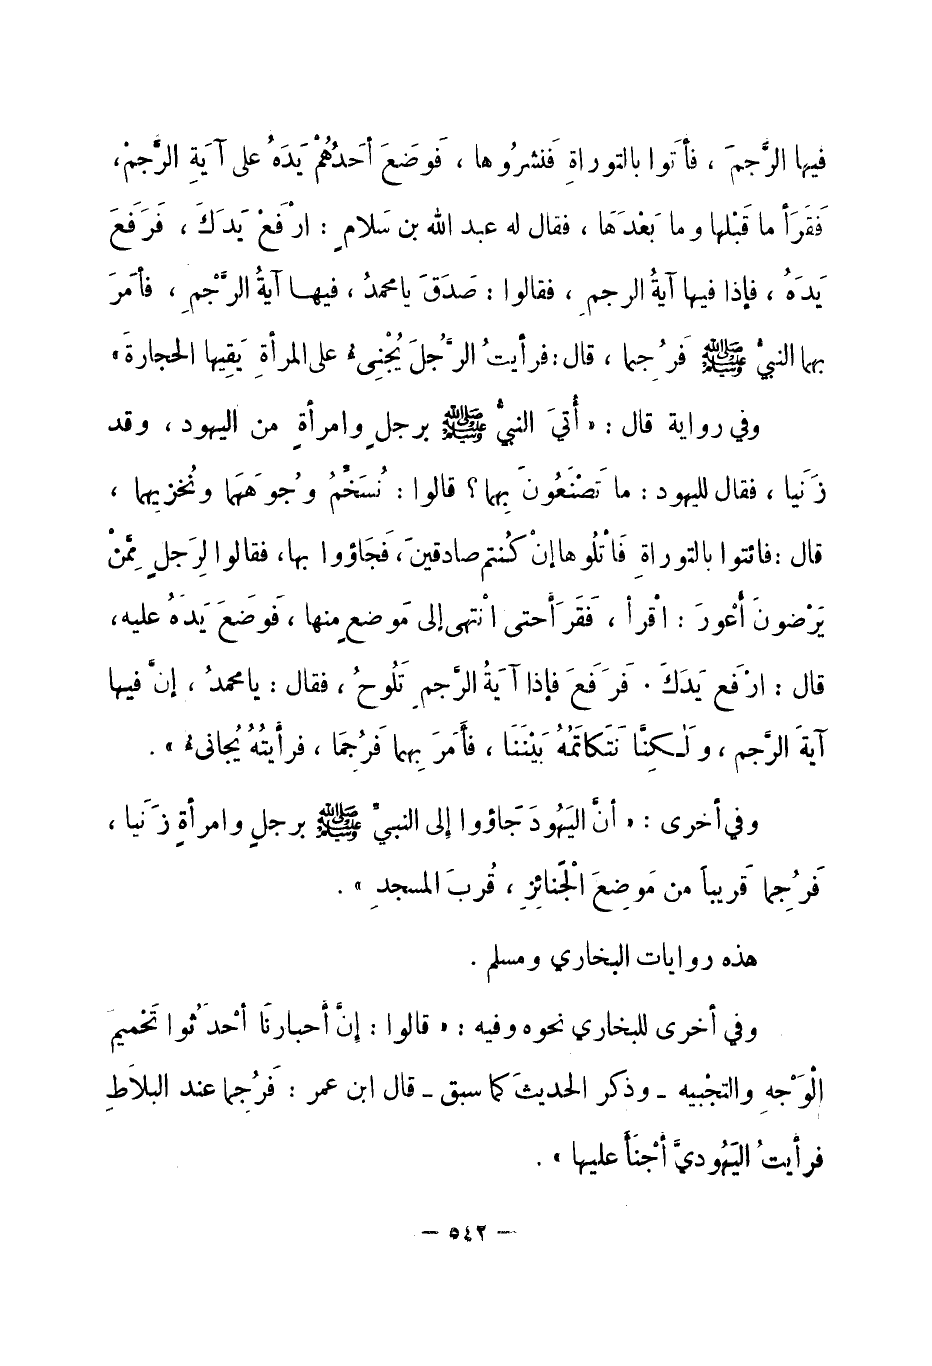 فيها الرَّجمَ ، فأَتوا بالتوراةِ فَنشرُوها ، فَوضَعَ أَحدُهُمْ يَدَهُ على آيَةِ الرَّجمْ،
فَقَرَأَ ما قَبْلها وما بَعْدَهَا ، فقال له عبد الله بن سَلامٍ : ارْفَعْ يَدَكَ ، فَرَفَعَ
يَدَهُ ، فإذا فيها آيةُ الرجمِ ، فقالوا : صَدَقَ يامحمدُ ، فيهـا آيةُ الرَّجْمِ ، فأَمَرَ
بهما النبيُّ ﷺ فَرُجِما ، قال : فرأيتُ الرَّجُلَ يُجْنِىء على المرأةِ يَقِيها الحجارةَ »
وفي رواية قال : « أُتيَ النبيُّ ﷺ برجلٍ وامرأةٍ من اليهود ، وقد
زَنَيا ، فقال لليهود : ما تَصْنَعُونَ بِهما ؟ قالوا : نُسَخِّمُ وُجوهَهما ونُخزِيهما ،
قال : فائتوا بالتوراةِ فَاتْلُوها إنْ كُنتم صادقينَ ، فَجَاؤوا بها، فقالوا لِرَجلٍ مِمَّنْ
يَرْضونَ أَعْورَ : اقْرأ ، فَقَرأَ حتى انْتهى إلى مَوضعٍ منها ، فَوضَعَ يَدَهُ عليه،
قال : ارْفَع يَدَكَ . فَرَفَعَ فإذا آيَةُ الرَّجمِ تَلُوحُ ، فقال : يامحمدُ ، إنَّ فيها
آيَةَ الرَّجمِ ، ولَـكِنَّا نَتَكاتَمُهُ بَيْنَنَا ، فأَمَرَ بِهما فَرُجِمَا ، فرأَيتُهُ يُجانىء » .
وفي أخرى : « أنَّ اليَهُودَ جَاؤوا إلى النبيِّ ﷺ برجلٍ وامرأةٍ زَنَيا ،
فَرُجِما قَريباً من مَوضِعَ الْجَنائِزِ ، قُربَ المسجدِ » .
هذه روايات البخاري ومسلم .
وفي أخرى للبخاري نحوه وفيه : « قالوا : إنَّ أَحبارنَا أَحْدَثُوا تَحْميمَ
الْوَجْهِ والتجْبيه ـ وذكر الحديثَ كما سبق ـ قال ابن عمر : فَرُجما عند البلاَطِ
فرأيتُ اليَهُوديَّ أَجْنَأَ عليها » .
— ٥٤٢ —